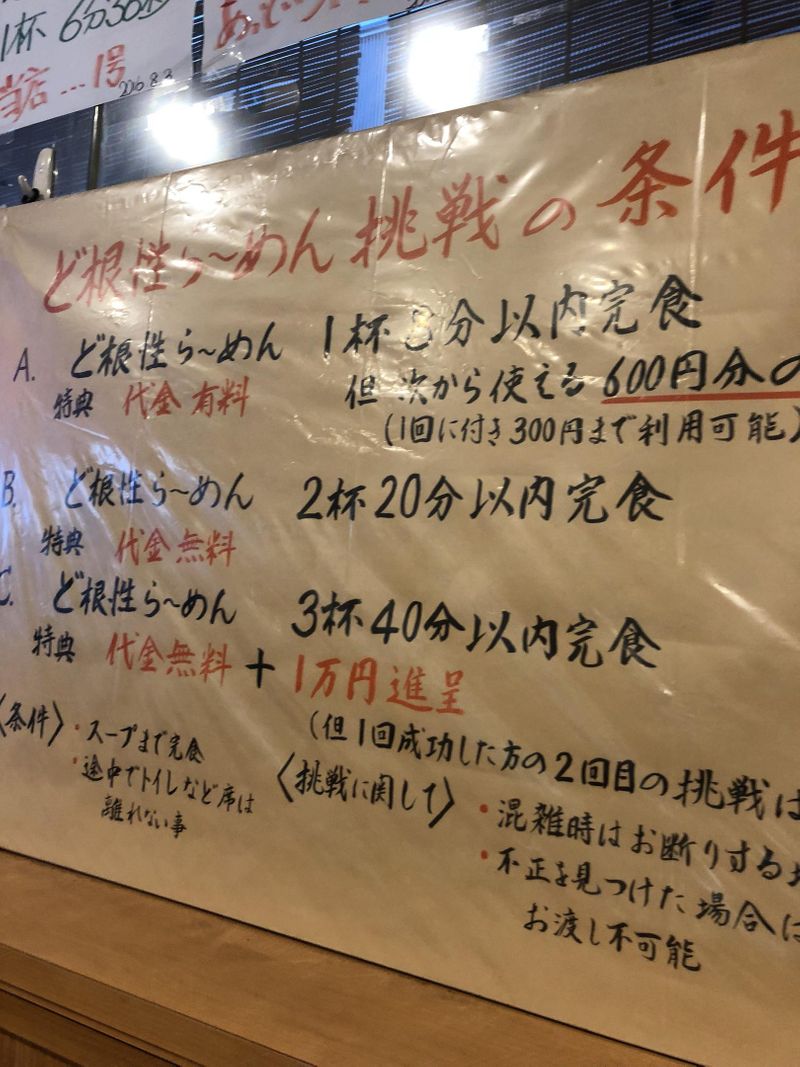 1杯 6分30秒
当店…1号
2016.8.3
ど根性ら〜めん挑戦の条件
A. ど根性ら〜めん 1杯 8分以内完食
特典 代金有料 但 次から使える 600円分の
(1回に付き300円まで利用可能)
B. ど根性ら〜めん 2杯20分以内完食
特典 代金無料
C. ど根性ら〜めん 3杯40分以内完食
特典 代金無料 + 1万円進呈
(但1回成功した方の2回目の挑戦は
〈条件〉・スープまで完食
・途中でトイレなど席は
離れない事
〈挑戦に関して〉・混雑時はお断りする場
・不正を見つけた場合は
お渡し不可能